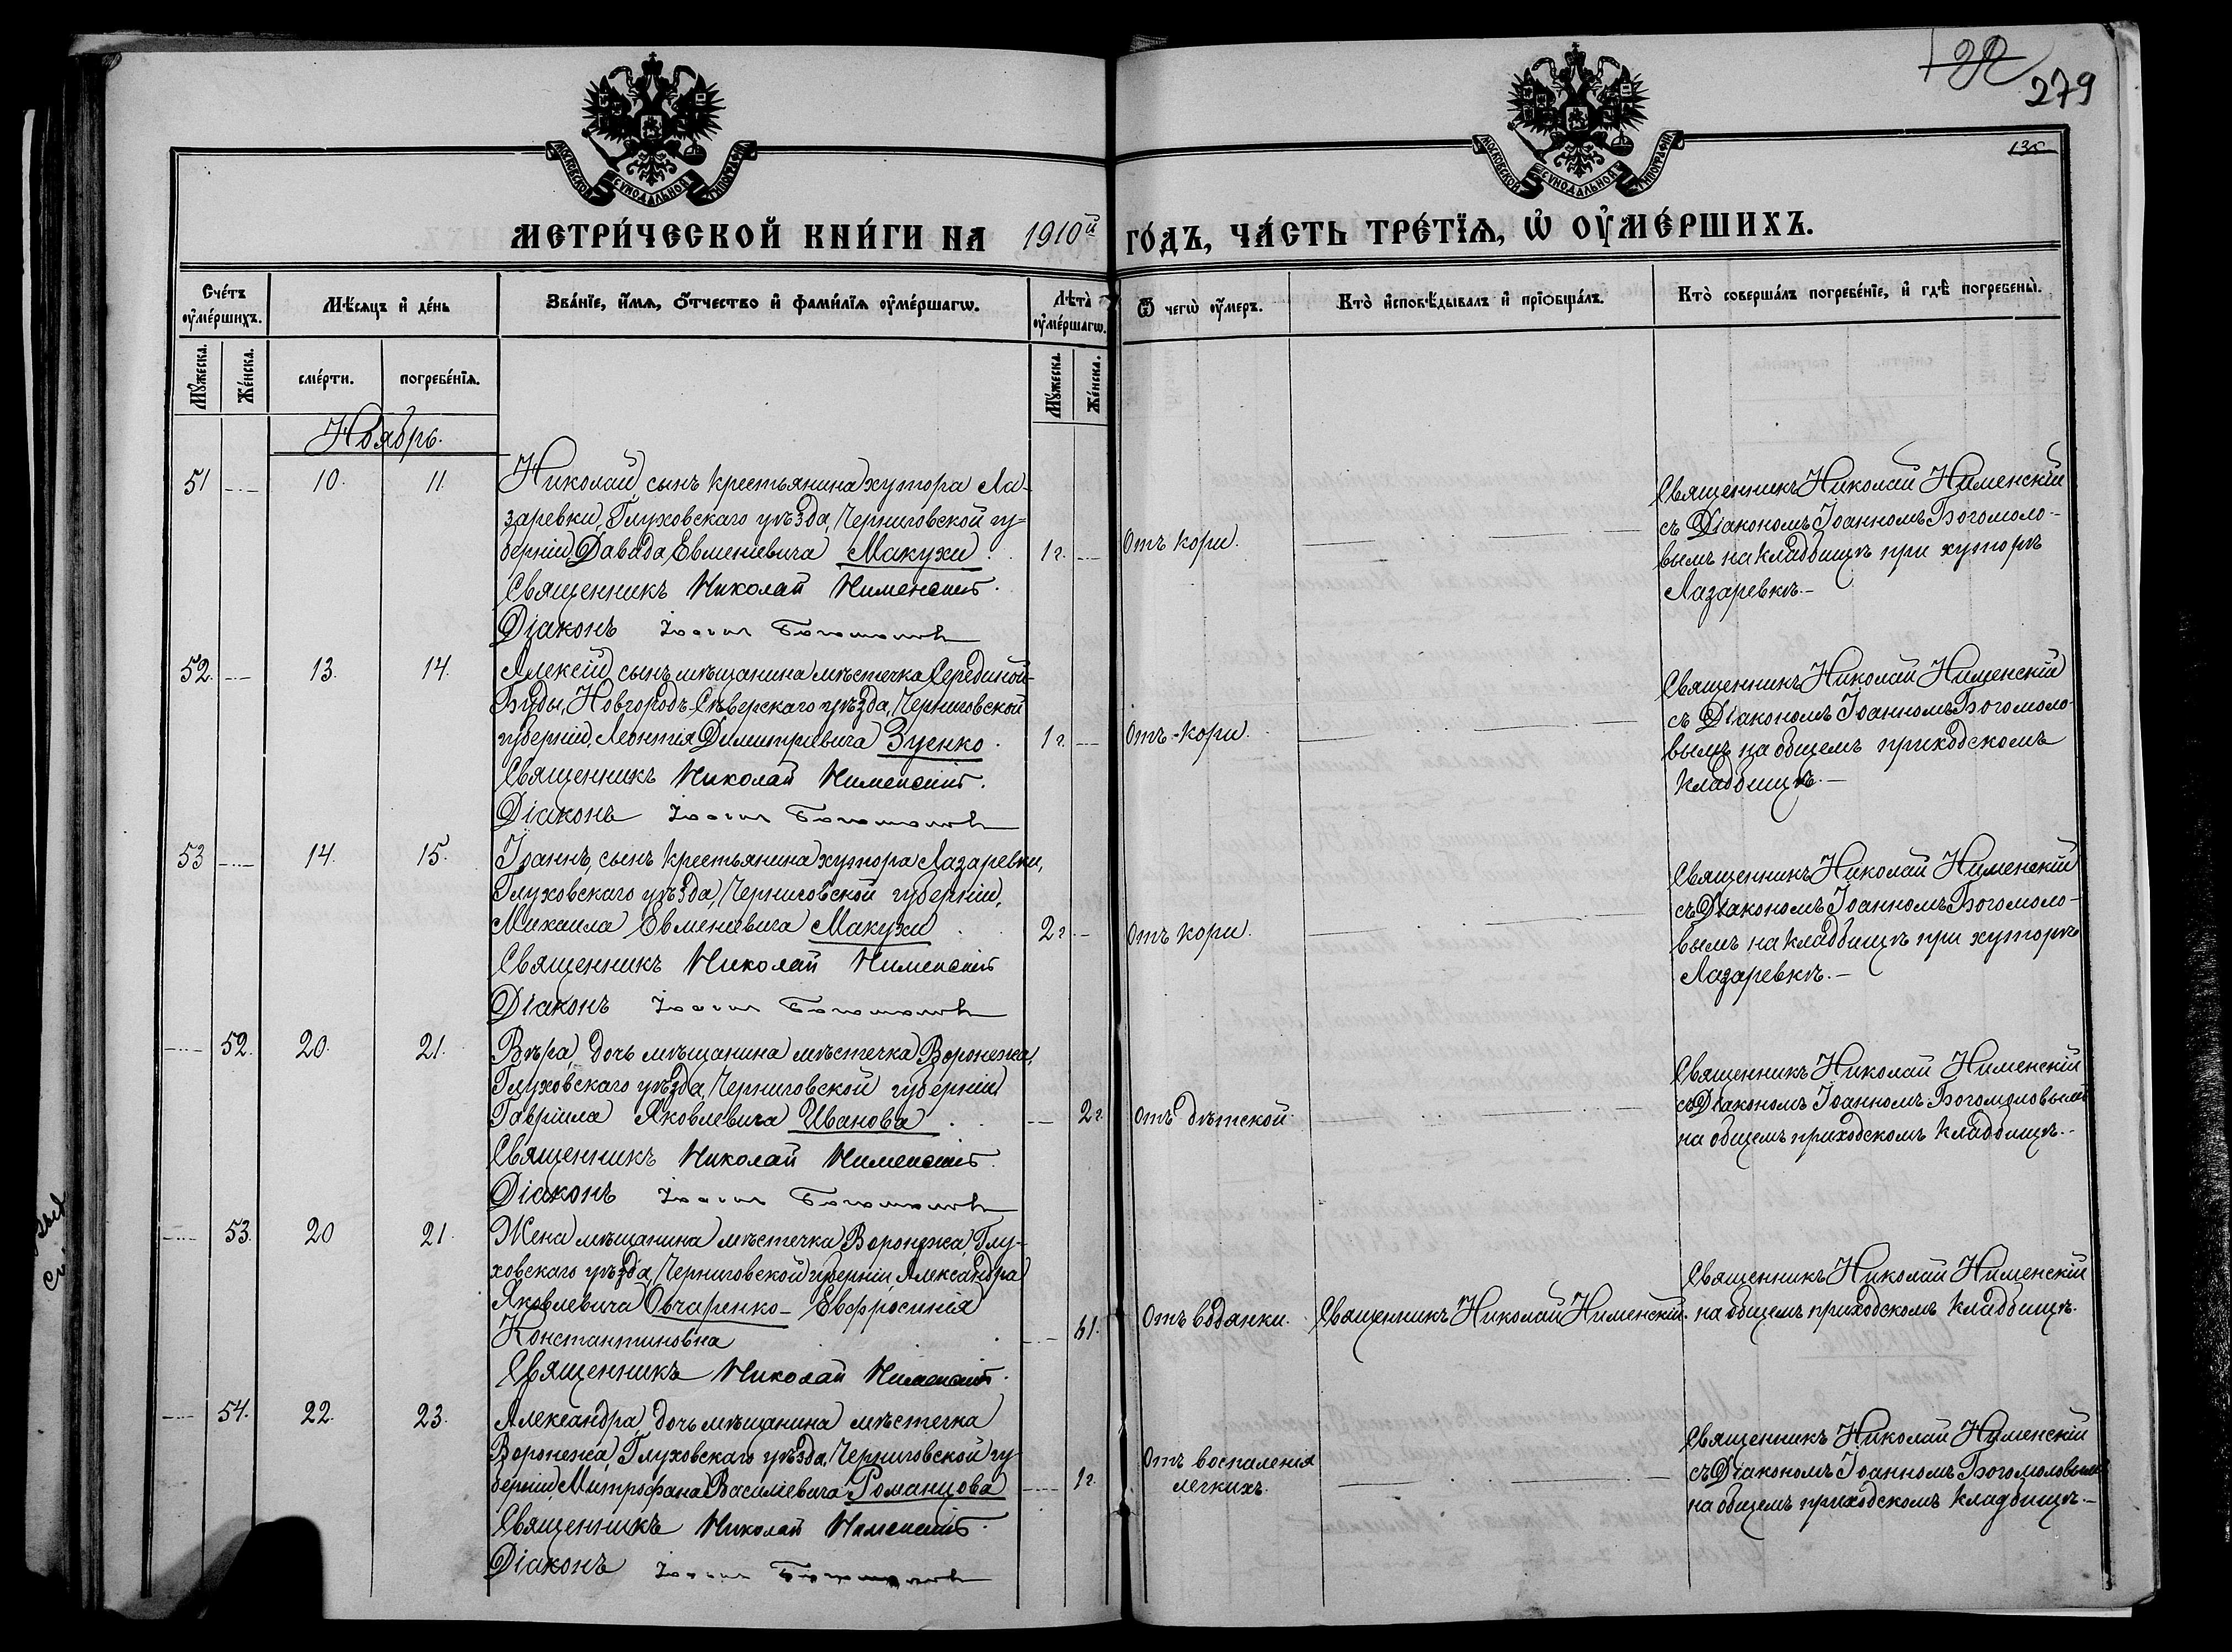 132
279
135
МОСКОВСКОЙ СУНОДАЛЬНОЙ ТИПОГРАФІИ
МОСКОВСКОЙ СУНОДАЛЬНОЙ ТИПОГРАФІИ
МЕТРИ́ЧЕСКОЙ КНИ́ГИ НА 1910й ГО́ДЪ, ЧА́СТЬ ТРЕ́ТЇѦ, Ѽ ОУ҆МЕ́РШИХЪ.
Сче́тъ оу҆ме́ршихъ.
Мѣ́сяцъ и҆ де́нь
Зва́нїе, и҆́мѧ, ѻ҆́тчество и҆ фами́лїѧ оу҆ме́ршагѡ.
Лѣта̀ оу҆ме́ршагѡ.
Ѿ чегѡ̀ оу҆́меръ.
Кто̀ и҆сповѣ́дывалъ и҆ прїѡбща́лъ.
Кто̀ соверша́лъ погребе́нїе, и҆ гдѣ̀ погребены̀.
Мꙋ́жеска.
Же́нска.
сме́рти.
погребе́нїѧ.
Мꙋ́жеска.
Же́нска.
Ноябрь.
51 10. 11. Николай, сынъ крестьянина хутора Ла-
заревки, Глуховскаго уѣзда, Черниговской гу-
берніи, Давида Евменіевича Макухи. 1 г. Отъ кори.
Священникъ Николай Нименскій.
Діаконъ Іоаннъ Богомоловъ
Священникъ Николай Нименскій
съ Діакономъ Іоанномъ Богомоло-
вымъ на кладбищѣ при хуторѣ
Лазаревкѣ.-
52. 13. 14. Алексій, сынъ мѣщанина мѣстечка Серединой-
Буды, Новгородъ-Сѣверскаго уѣзда, Черниговской
губерніи, Леонтія Димитріевича Зуенко. 1 г. Отъ-кори.
Священникъ Николай Нименскій.
Діаконъ Іоаннъ Богомоловъ
Священникъ Николай Нименскій
съ Діакономъ Іоанномъ Богомоло-
вымъ на общемъ приходскомъ
кладбищѣ.-
53 14. 15. Іоаннъ, сынъ крестьянина хутора Лазаревки,
Глуховскаго уѣзда, Черниговской губерніи,
Михаила Евменіевича Макухи 2 г. Отъ кори.
Священникъ Николай Нименскій
Діаконъ Іоаннъ Богомоловъ
Священникъ Николай Нименскій
съ Діакономъ Іоанномъ Богомоло-
вымъ на кладбищѣ при хуторѣ
Лазаревкѣ.-
52. 20. 21. Вѣра, дочь мѣщанина мѣстечка Воронежа,
Глуховскаго уѣзда, Черниговской губерніи
Гавріила Яковлевича Иванова. 2 г. Отъ дѣтской
Священникъ Николай Нименскій.
Діаконъ Іоаннъ Богомоловъ
Священникъ Николай Нименскій
съ Діакономъ Іоанномъ Богомоловымъ
на общемъ приходскомъ кладбищѣ.-
53. 20 21. Жена мѣщанина мѣстечка Воронежа, Глу-
ховскаго уѣзда, Черниговской губерніи, Александра
Яковлевича Овчаренко- Евфросинія
Константиновна 61. Отъ водянки. Священникъ Николай Нименскій.
Священникъ Николай Нименскій.
Священникъ Николай Нименскій
на общемъ приходскомъ кладбищѣ.
54. 22. 23. Александра, дочь мѣщанина мѣстечка
Воронежа, Глуховскаго уѣзда, Черниговской гу-
берніи, Митрофана Василіевича Романцова 1 г. Отъ воспаленія
легкихъ.
Священникъ Николай Нименскій.
Діаконъ Іоаннъ Богомоловъ
Священникъ Николай Нименскій
съ Діакономъ Іоанномъ Богомоловымъ
на общемъ приходскомъ кладбищѣ.-